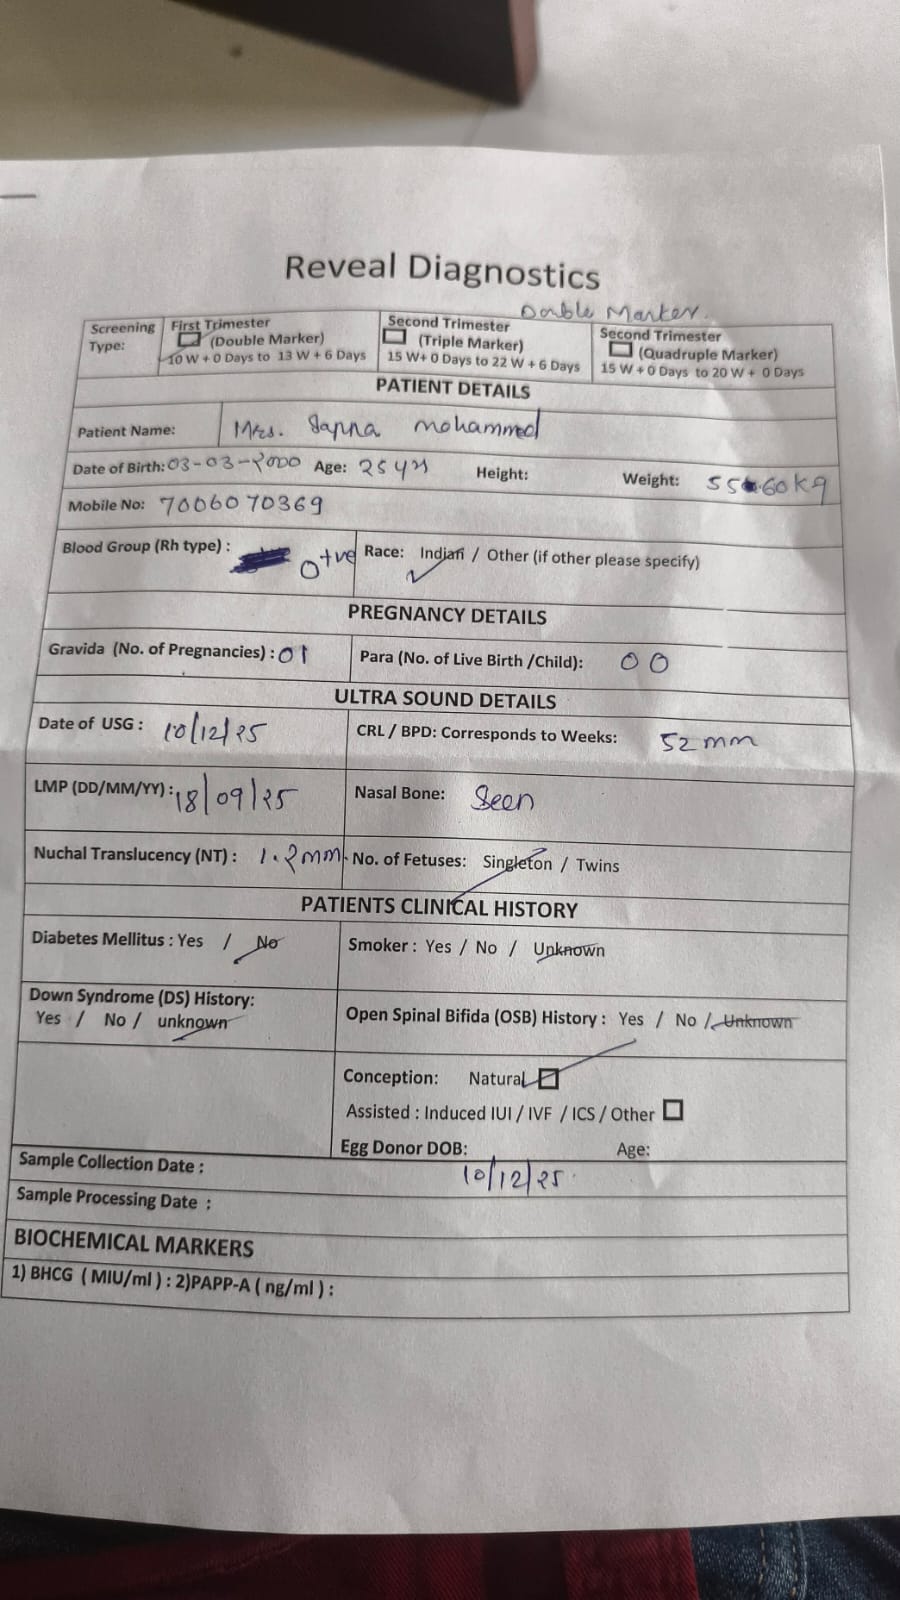 Reveal Diagnostics
Double Marker.
Screening Type: First Trimester (Double Marker) 10 W + 0 Days to 13 W + 6 Days Second Trimester (Triple Marker) 15 W+ 0 Days to 22 W + 6 Days Second Trimester (Quadruple Marker) 15 W + 0 Days to 20 W + 0 Days
PATIENT DETAILS
Patient Name: Mrs. Sapna mohammed
Date of Birth: 03-03-2000 Age: 25 yrs Height: Weight: 55.60 kg
Mobile No: 7006070369
Blood Group (Rh type) : O+ve Race: Indian / Other (if other please specify)
PREGNANCY DETAILS
Gravida (No. of Pregnancies) : 01 Para (No. of Live Birth /Child): 00
ULTRA SOUND DETAILS
Date of USG : 10/12/25 CRL / BPD: Corresponds to Weeks: 52 mm
LMP (DD/MM/YY) : 18/09/25 Nasal Bone: Seen
Nuchal Translucency (NT) : 1.2 mm No. of Fetuses: Singleton / Twins
PATIENTS CLINICAL HISTORY
Diabetes Mellitus : Yes / No Smoker : Yes / No / Unknown
Down Syndrome (DS) History: Yes / No / unknown Open Spinal Bifida (OSB) History : Yes / No / Unknown
Conception: Natural
Assisted : Induced IUI / IVF / ICS / Other
Egg Donor DOB: Age:
Sample Collection Date : 10/12/25
Sample Processing Date :
BIOCHEMICAL MARKERS
1) BHCG ( MIU/ml ) : 2)PAPP-A ( ng/ml ) :